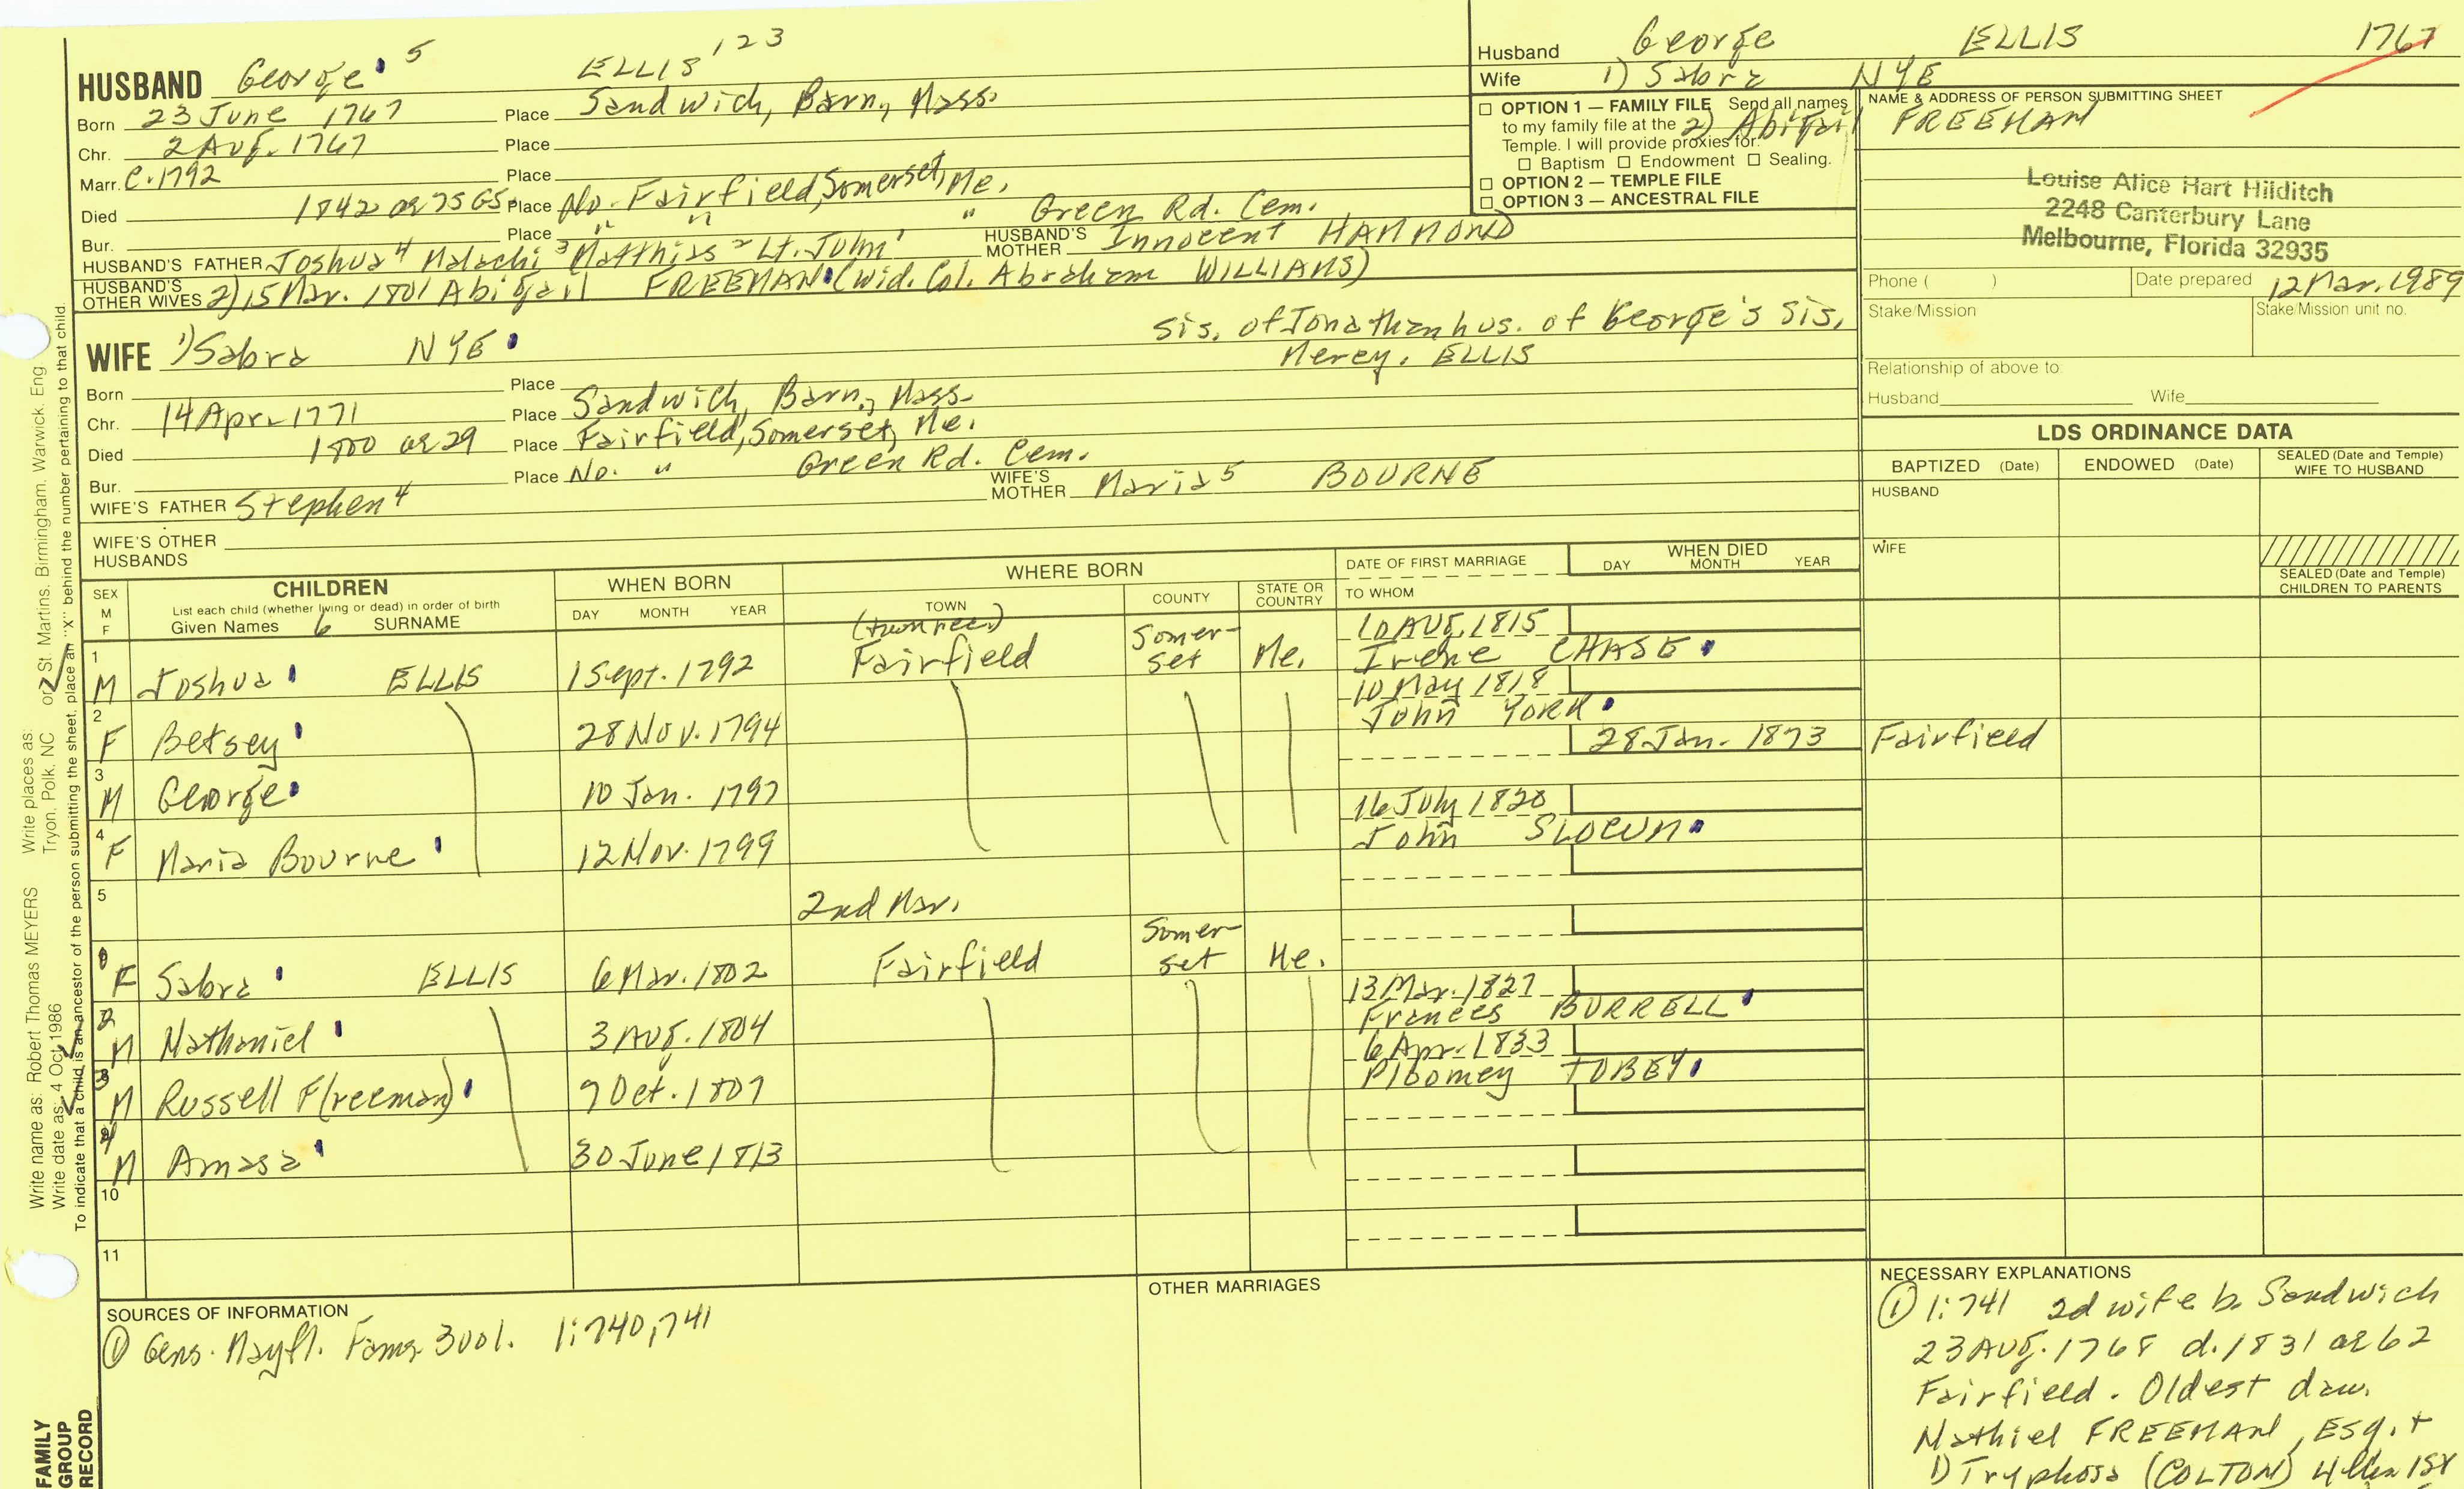 HUSBAND George 5 ELLIS 1 2 3
Born 23 June 1767 Place Sandwich, Barn, Mass.
Chr. 2 Aug. 1767 Place
Marr. c. 1792 Place
Died 1842 ae 75 GS Place No. Fairfield, Somerset, Me.
Bur. Place " " " Green Rd. Cem.
HUSBAND'S FATHER Joshua 4 Malachi 3 Matthias 2 Lt. John 1 HUSBAND'S MOTHER Innocent HAMMOND
HUSBAND'S OTHER WIVES 2) 15 Mar. 1801 Abigail FREEMAN (wid. Col. Abraham WILLIAMS)
WIFE 1) Sabra NYE
Sis. of Jonathan hus. of George's sis,
Mercy. ELLIS
Born Place
Chr. 14 Apr. 1771 Place Sandwich, Barn., Mass.
Died 1800 ae 29 Place Fairfield, Somerset, Me.
Bur. Place No. " Green Rd. Cem.
WIFE'S FATHER Stephen 4 WIFE'S MOTHER Maria 5 BOURNE
WIFE'S OTHER HUSBANDS
Husband George ELLIS 1767
Wife 1) Sabra NYE
OPTION 1 — FAMILY FILE Send all names
to my family file at the 2) Abigail FREEMAN
Temple. I will provide proxies for:
Baptism Endowment Sealing.
OPTION 2 — TEMPLE FILE
OPTION 3 — ANCESTRAL FILE
NAME & ADDRESS OF PERSON SUBMITTING SHEET
Louise Alice Hart Hilditch
2248 Canterbury Lane
Melbourne, Florida 32935
Phone ( ) Date prepared 12 Mar. 1989
Stake/Mission Stake/Mission unit no.
Relationship of above to:
Husband Wife
LDS ORDINANCE DATA
BAPTIZED (Date) ENDOWED (Date) SEALED (Date and Temple) WIFE TO HUSBAND
HUSBAND
WIFE
SEALED (Date and Temple) CHILDREN TO PARENTS
SEX M F
CHILDREN
List each child (whether living or dead) in order of birth
Given Names 6 SURNAME
WHEN BORN
DAY MONTH YEAR
WHERE BORN
TOWN COUNTY STATE OR COUNTRY
DATE OF FIRST MARRIAGE
TO WHOM
WHEN DIED
DAY MONTH YEAR
1 M Joshua ELLIS 1 Sept. 1792 (twn rec.) Fairfield Somer-set Me. 10 Aug. 1815 Irene CHASE
2 F Betsey 28 Nov. 1794 10 May 1818 John YORK
3 M George 10 Jan. 1797 28 Jan. 1873 Fairfield
4 F Maria Bourne 12 Nov. 1799 16 July 1820 John SLOCUM
5 2nd Mar.
F Sabra ELLIS 6 Mar. 1802 Fairfield Somer-set Me.
2 M Nathaniel 3 Aug. 1804 13 Mar. 1827 Frances BURRELL
3 M Russell F(reeman) 9 Oct. 1807 6 Apr. 1833 Plboomey TOBEY
4 M Amasa 30 June 1813
10
11
SOURCES OF INFORMATION
① Gens. Mayfl. Fams. 3 vol. 1:740,741
OTHER MARRIAGES
NECESSARY EXPLANATIONS
① 1:741 2d wife b. Sandwich
23 Aug. 1768 d. 1831 ae 62
Fairfield. Oldest dau.
Nathiel FREEMAN, Esq. +
1) Tryphosa (COLTON)
Write name as: Robert Thomas MEYERS Write places as: or St. Martins, Birmingham, Warwick, Eng
Write date as: 4 Oct 1986 Tryon, Polk, NC
To indicate that a child is an ancestor of the person submitting the sheet, place an "X" behind the number pertaining to that child.
FAMILY
GROUP
RECORD